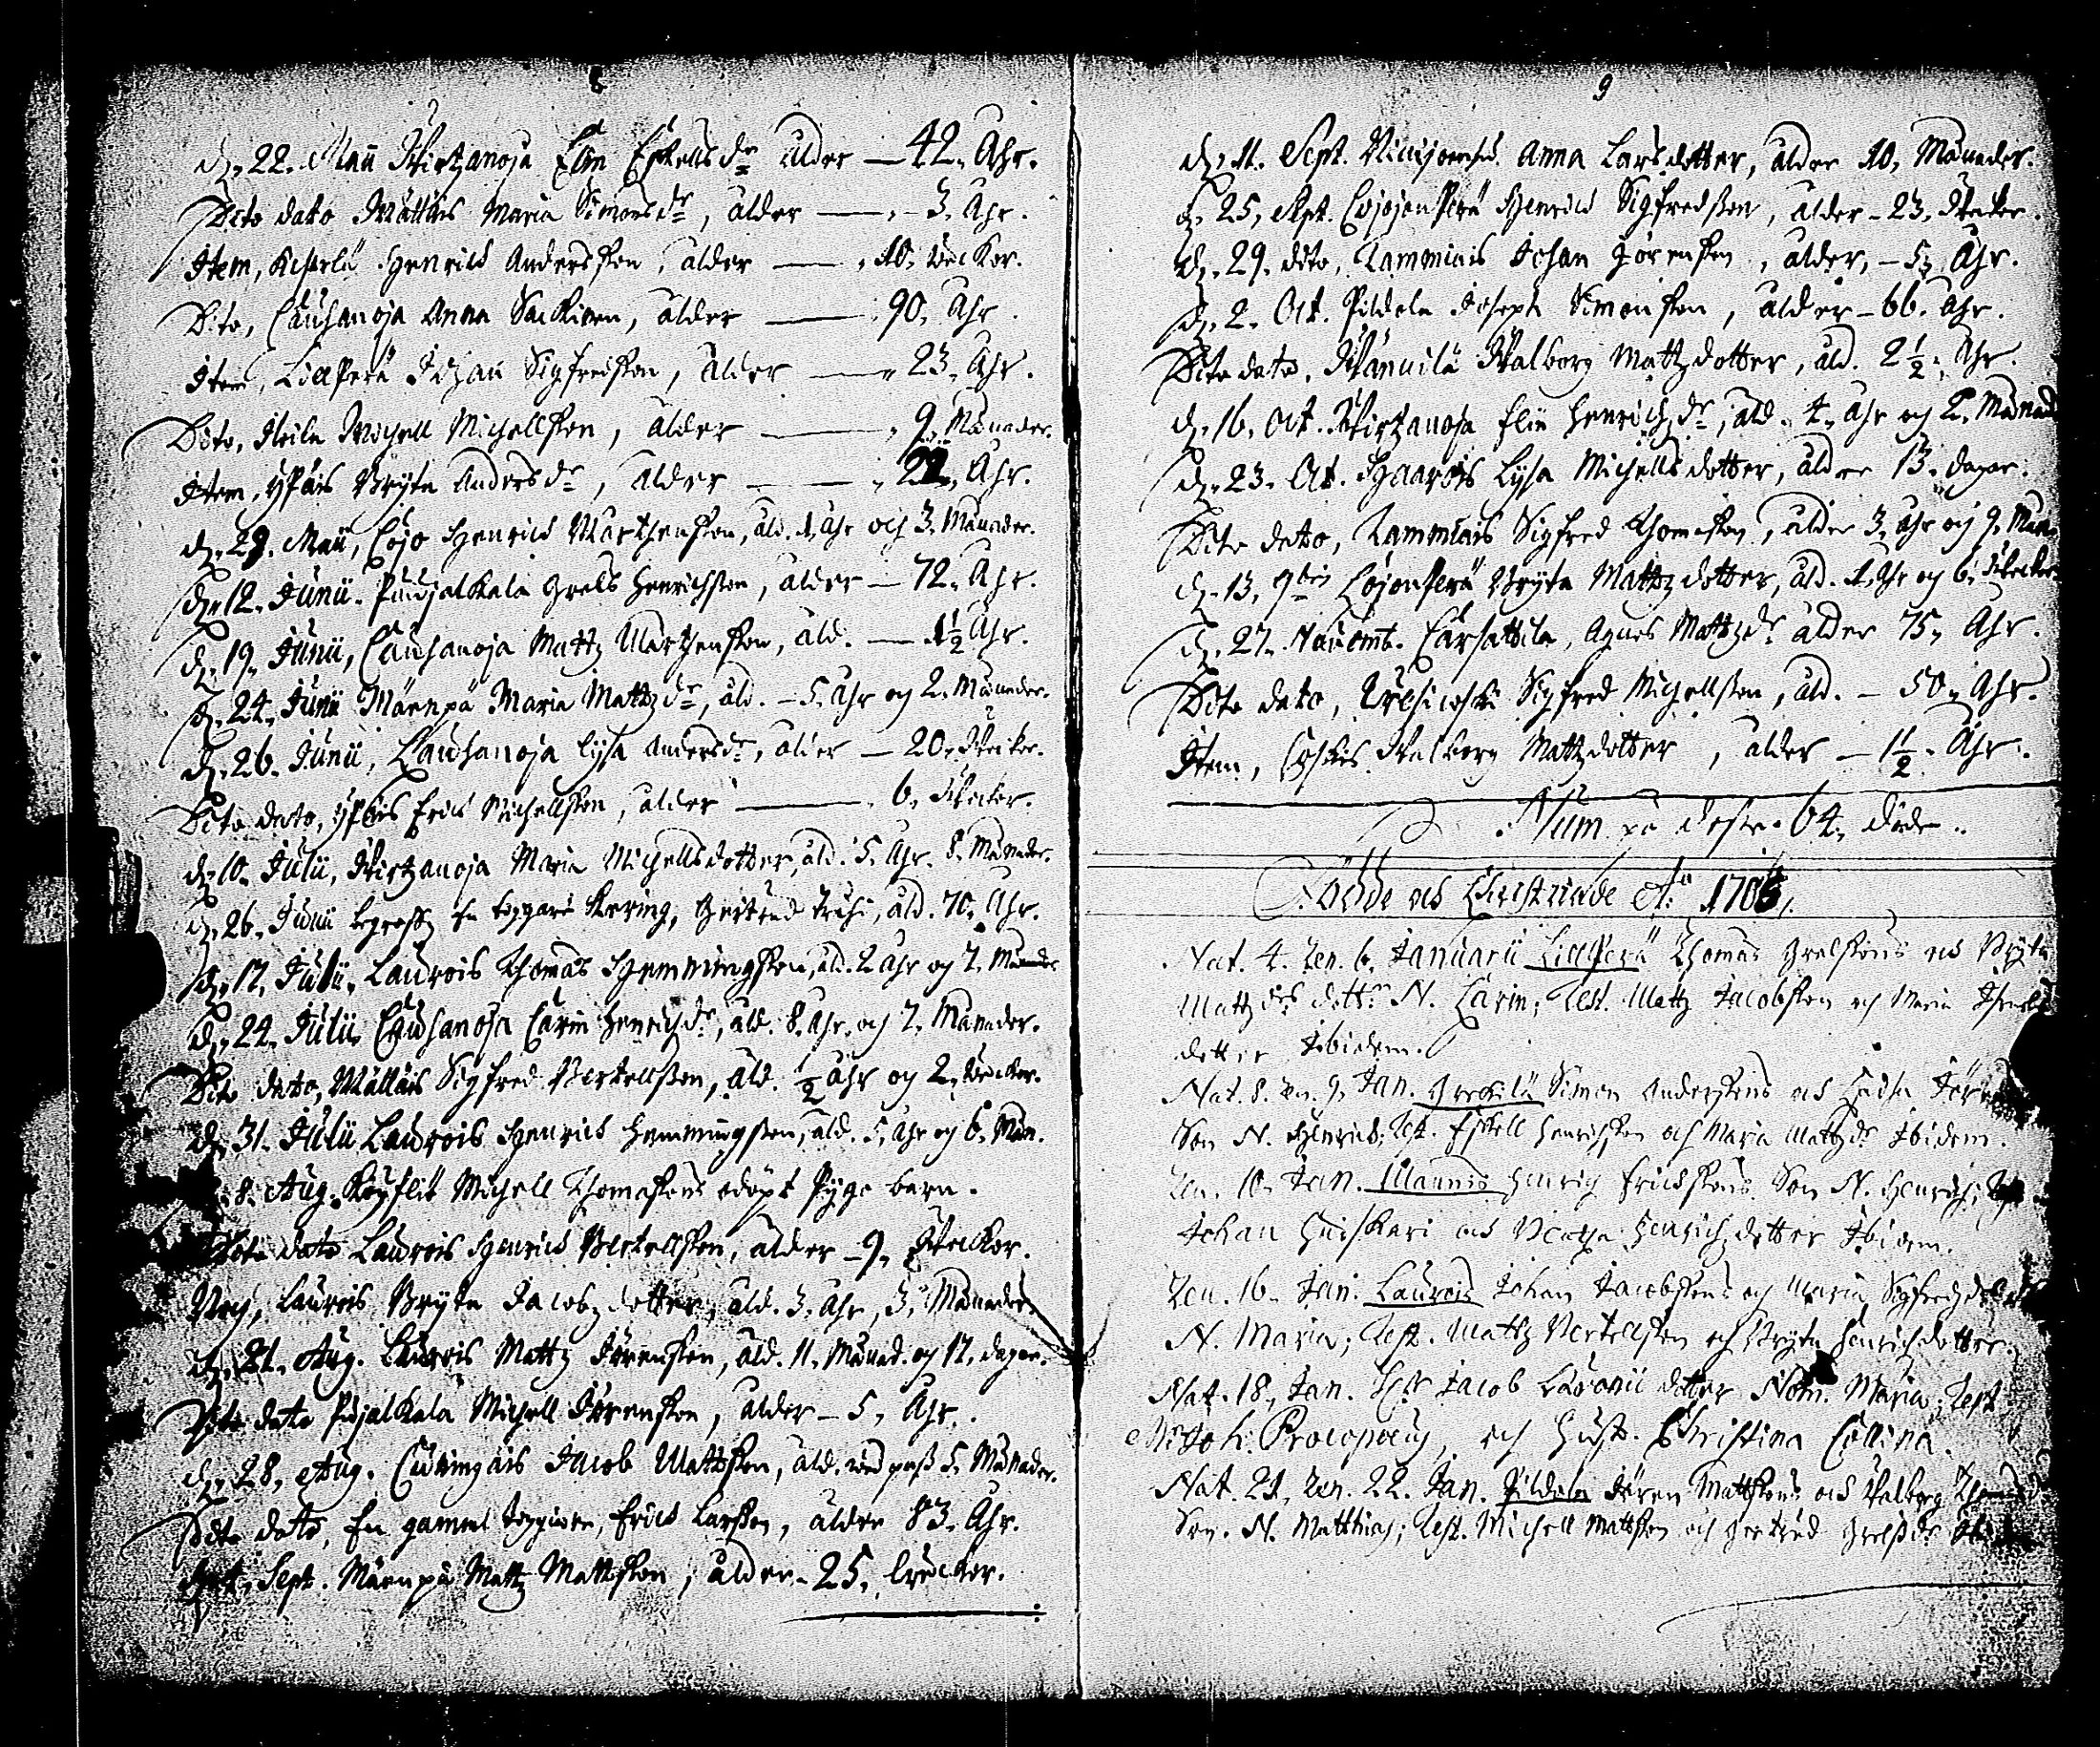 8
d. 22. Maii Wirtzanoja Elin Eskells dr ålder — 42. Åhr.
Dito dato Mattłis Maria Simonsdr, ålder — 3. Åhr.
Item, Henrich Andersson, ålder — 10. Weckor.
Dito, Cauhanoja Anna Sackioen, ålder — 90. Åhr.
Item, Lillperä Johan Sigfredsson, ålder — 23. Åhr.
Dito, Heila Michell Michellsson, ålder — 9. Månader.
Item, Ypäis Bryta Anders dr, ålder — Åhr.
d. 29. Maii, Cojo Henrich Marthensson, åld. 1. Åhr och 3. Månader.
d. 12. Junii. Grels Henrichsson, ålder — 72. Åhr.
d. 19. Junii, Cauhanoja Mattz Marthensson, åld. — 1½ Åhr.
d. 24. Junii Mäenpä Maria Mattzdr, åld. — 5. Åhr og 2. Månader.
d. 26. Junii, Cauhanoja Lysa Andersdr, ålder — 20. Weckor.
Dito dato, Ypäis Erich Michellsson, ålder — 6. Weckor.
d. 10. Julii, Wirtzanoja Maria Michellsdotter, åld. 5. Åhr. 8. Månader.
d. 26. Junii begrofz en tiggare kering, Gertrud åld. 70. Åhr.
d. 17. Julii. Laurois Thomas Hemmingsson, åld. 2 Åhr og 7. Månader
d. 24. Julii Cauhanoja Carin Henrichdr, åld. 8. Åhr. och 7. Månader.
Dito dato, Mälläis Sigfred Bertellsson, åld. ½ Åhr og 2. Weckor.
d. 31. Julii Laurois Henrich Hemmingsson, åld. 5. Åhr og 6. Mån.
8. Aug. Michell Thomassons odöpt Pyge barn.
Dito dato Laurois Henrich Bertellsson, ålder — 9. Weckor.
Och, Laurois Bryta Jacobz dotter, åld. 3. Åhr, 3. Månader.
d. 21. Aug. Laurois Mattz Jörensson, åld. 11. Månad. og 17. dagar.
Dito dato Pujalkala Michell Jörensson, ålder — 5. Åhr.
d. 28. Aug. Cuningais Jacob Mattsson, åld. wed pass 5. Månader.
Dito dato, En gammel Erich Larsson, ålder 83. Åhr.
Sept. Mäenpä Mattz Mattsson, ålder — 25. Weckor.
9
d. 11. Sept. Anna Larsdotter, ålder 10. Månader.
d. 25. Sept. Cojojonperä Henrich Sigfredsson, ålder — 23. Weckor.
d. 29. dito, Tammiais Johan Jörensson, ålder, — 5. Åhr.
d. 2. Oct. Pildola Joseph Simonsson, ålder — 66. Åhr.
Dito dato, Wänuilä Walborg Mattzdotter, åld. 2½. Åhr.
d. 16. Oct. Wirtzanoja Elin Henrichdr, åld. 4. Åhr og 2. Månad
d. 23. Oct. Haarois Lysa Michellsdotter, ålder 13. dagar.
Dito dato, Tammiais Sigfred Thomasson, ålder 3. Åhr og 9. Mån.
d. 13. 9bris Cojonperä Bryta Mattzdotter, åld. 1. Åhr og 6. Weckor.
d. 27. Novemb. Carhattila, Agnes Mattzdr ålder 75. Åhr.
Dito dato, Sigfred Michellsson, åld. — 50. Åhr.
Item, Walborg Mattzdotter, ålder — 1½. Åhr.
Sum på desse. 64. döde.
Födde och Christnade Ao 170
Nat. 4. Ren. 6. Januarii Lillperä Thomas Grelssons och Bryta
Mattzdrs dottr N. Carin; Test. Mattz Jacobsson och Maria
dotter Ibidem.
Nat. 8. ren. 9. Jan. Simon Anderssons och
Son N. Henrich; Test. Eskell Henrichsson och Maria Mattzdr Ibidem.
Ren. 10. Jan. Maunus Henrich Erichssons Son N. Henrich; Test
Johan och Beata Henrichzdotter Ibidem.
Ren. 16. Jan. Laurois Johan Jacobssons og Maria Sigfredzdotter
N. Maria; Test. Mattz Bertellsson och Bryta Henrichdotter.
Nat. 18. Jan. Hr Jacob Lavonii dotter Nom. Maria; Test
Joh. Procopæus, och Hust. Christina Collina.
Nat. 21. Ren. 22. Jan. Pildola Jören Mattssons och Walborg
Son. N. Matthias; Test. Michell Mattsson och Gertrud Grelsdr